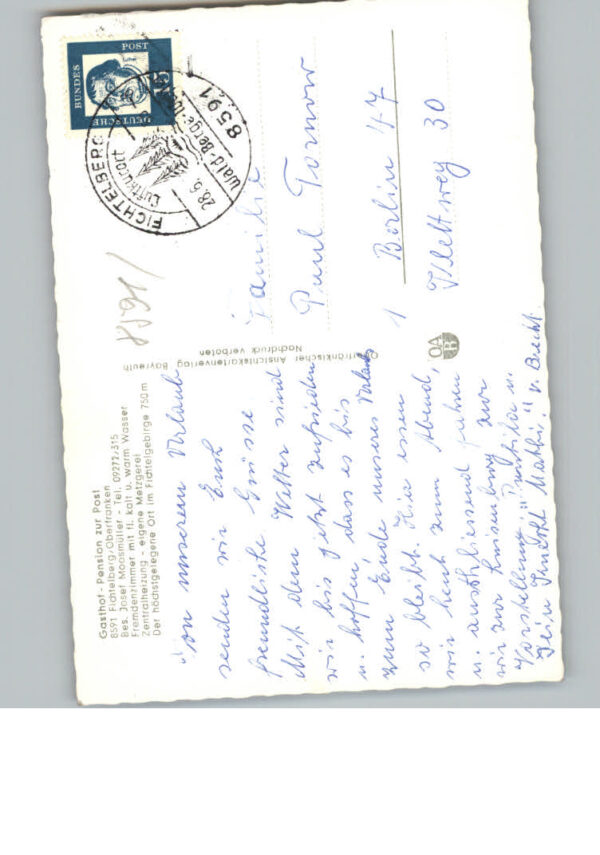 Gasthof - Pension zur Post
8591 Fichtelberg/Oberfranken
Bes. Josef Moosmüller - Tel. 09272/315
Fremdenzimmer mit fl. kalt u. warm Wasser
Zentralheizung - eigene Metzgerei
Der höchstgelegene Ort im Fichtelgebirge 750 m
Von unserem Urlaub
senden wir Euch
freundliche Grüsse
Mit dem Wetter sind
wir bis jetzt zufrieden
u. hoffen dass es bis
zum Ende unseres Urlaubs
so bleibt. Hier essen
wir heut zum Abend,
u. anschliessend fahren
wir zur Luisenburg zur
Vorstellung: "Puntila u.
sein Knecht Matti" v. Brecht.
Oberfränkischer Ansichtskartenverlag Bayreuth
Nachdruck verboten
OA
B
8591/
DEUTSCHE BUNDESPOST
15
8591 FICHTELBERG
Luftkurort
28.6.
Wald-Berge
Familie
Paul Tornow
1 Berlin 47
30